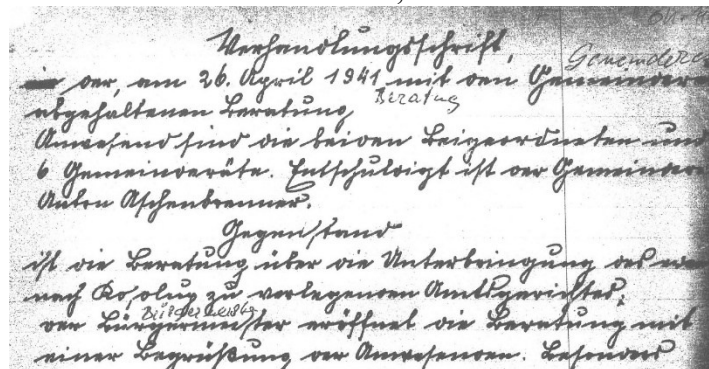 Verhandlungsschrift,
der, am 26. April 1941 mit den Gemeinderä
Gemeinderä
abgehaltenen Beratung,
Beratung
Anwesend sind die beiden Beigeordneten und
6 Gemeinderäte. Entschuldigt ist der Gemeinderat
Anton Aschenbrenner.
Gegenstand
ist die Beratung über die Unterbringung des
nach Kosolup zu verlegenden Amtsgerichtes,
Bürgermeister
der Bürgermeister eröffnet die Beratung mit
einer Begrüßung der Anwesenden. Besonders